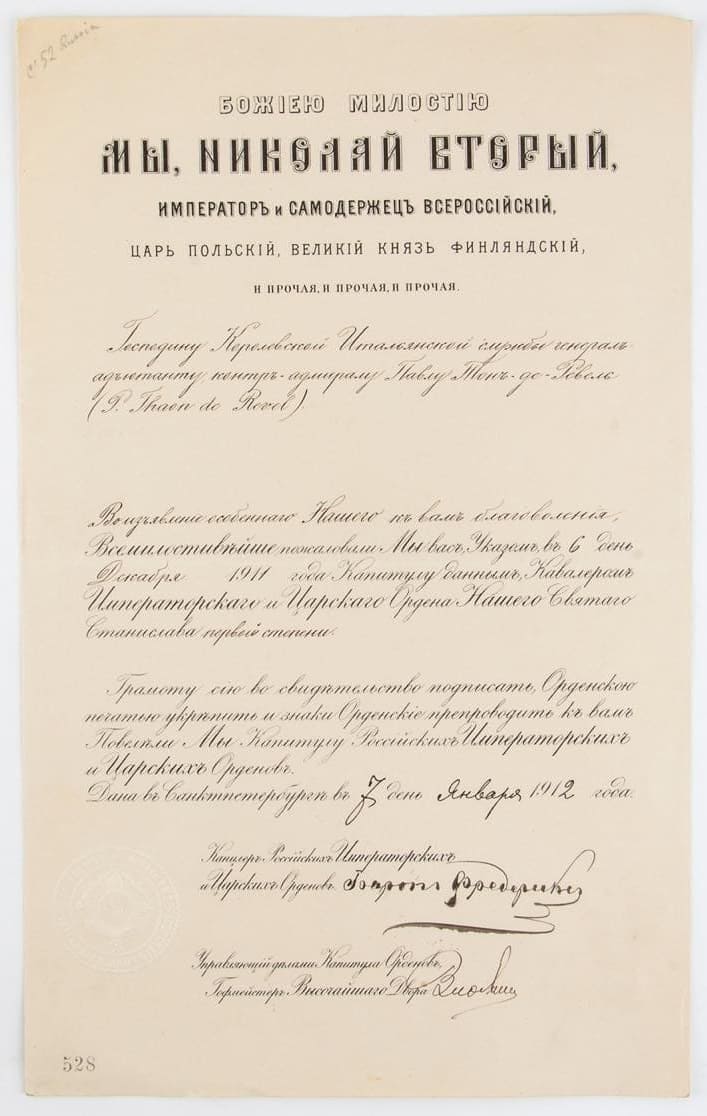 C' 52 Russia
БОЖІЕЮ МИЛОСТІЮ
МЫ, НИКОЛАЙ ВТОРЫЙ,
ИМПЕРАТОРЪ и САМОДЕРЖЕЦЪ ВСЕРОССІЙСКІЙ,
ЦАРЬ ПОЛЬСКІЙ, ВЕЛИКІЙ КНЯЗЬ ФИНЛЯНДСКІЙ,
И ПРОЧАЯ, И ПРОЧАЯ, И ПРОЧАЯ.
Господину Королевской Итальянской службы генералъ-
адъютанту, контръ-адмиралу Павлу Тонъ-де-Ревель
(P. Thaon de Revel).
Во изъявленіе особеннаго Нашего къ вамъ благоволенія,
Всемилостивѣйше пожаловали Мы васъ, Указомъ, въ 6 день
Декабря 1911 года Капитулу даннымъ, Кавалеромъ
Императорскаго и Царскаго Ордена Нашего Святаго
Станислава первой степени.
Грамоту сію во свидѣтельство подписать, Орденскою
печатью укрѣпить и знаки Орденскіе препроводить къ вамъ
Повелѣли Мы Капитулу Россійскихъ Императорскихъ
и Царскихъ Орденовъ.
Дана въ Санктпетербургѣ въ 7 день Января 1912 года.
Канцлеръ Россійскихъ Императорскихъ
и Царскихъ Орденовъ. Баронъ Фредериксъ
Управляющій дѣлами Капитула Орденовъ,
Гофмейстеръ Высочайшаго Двора
528